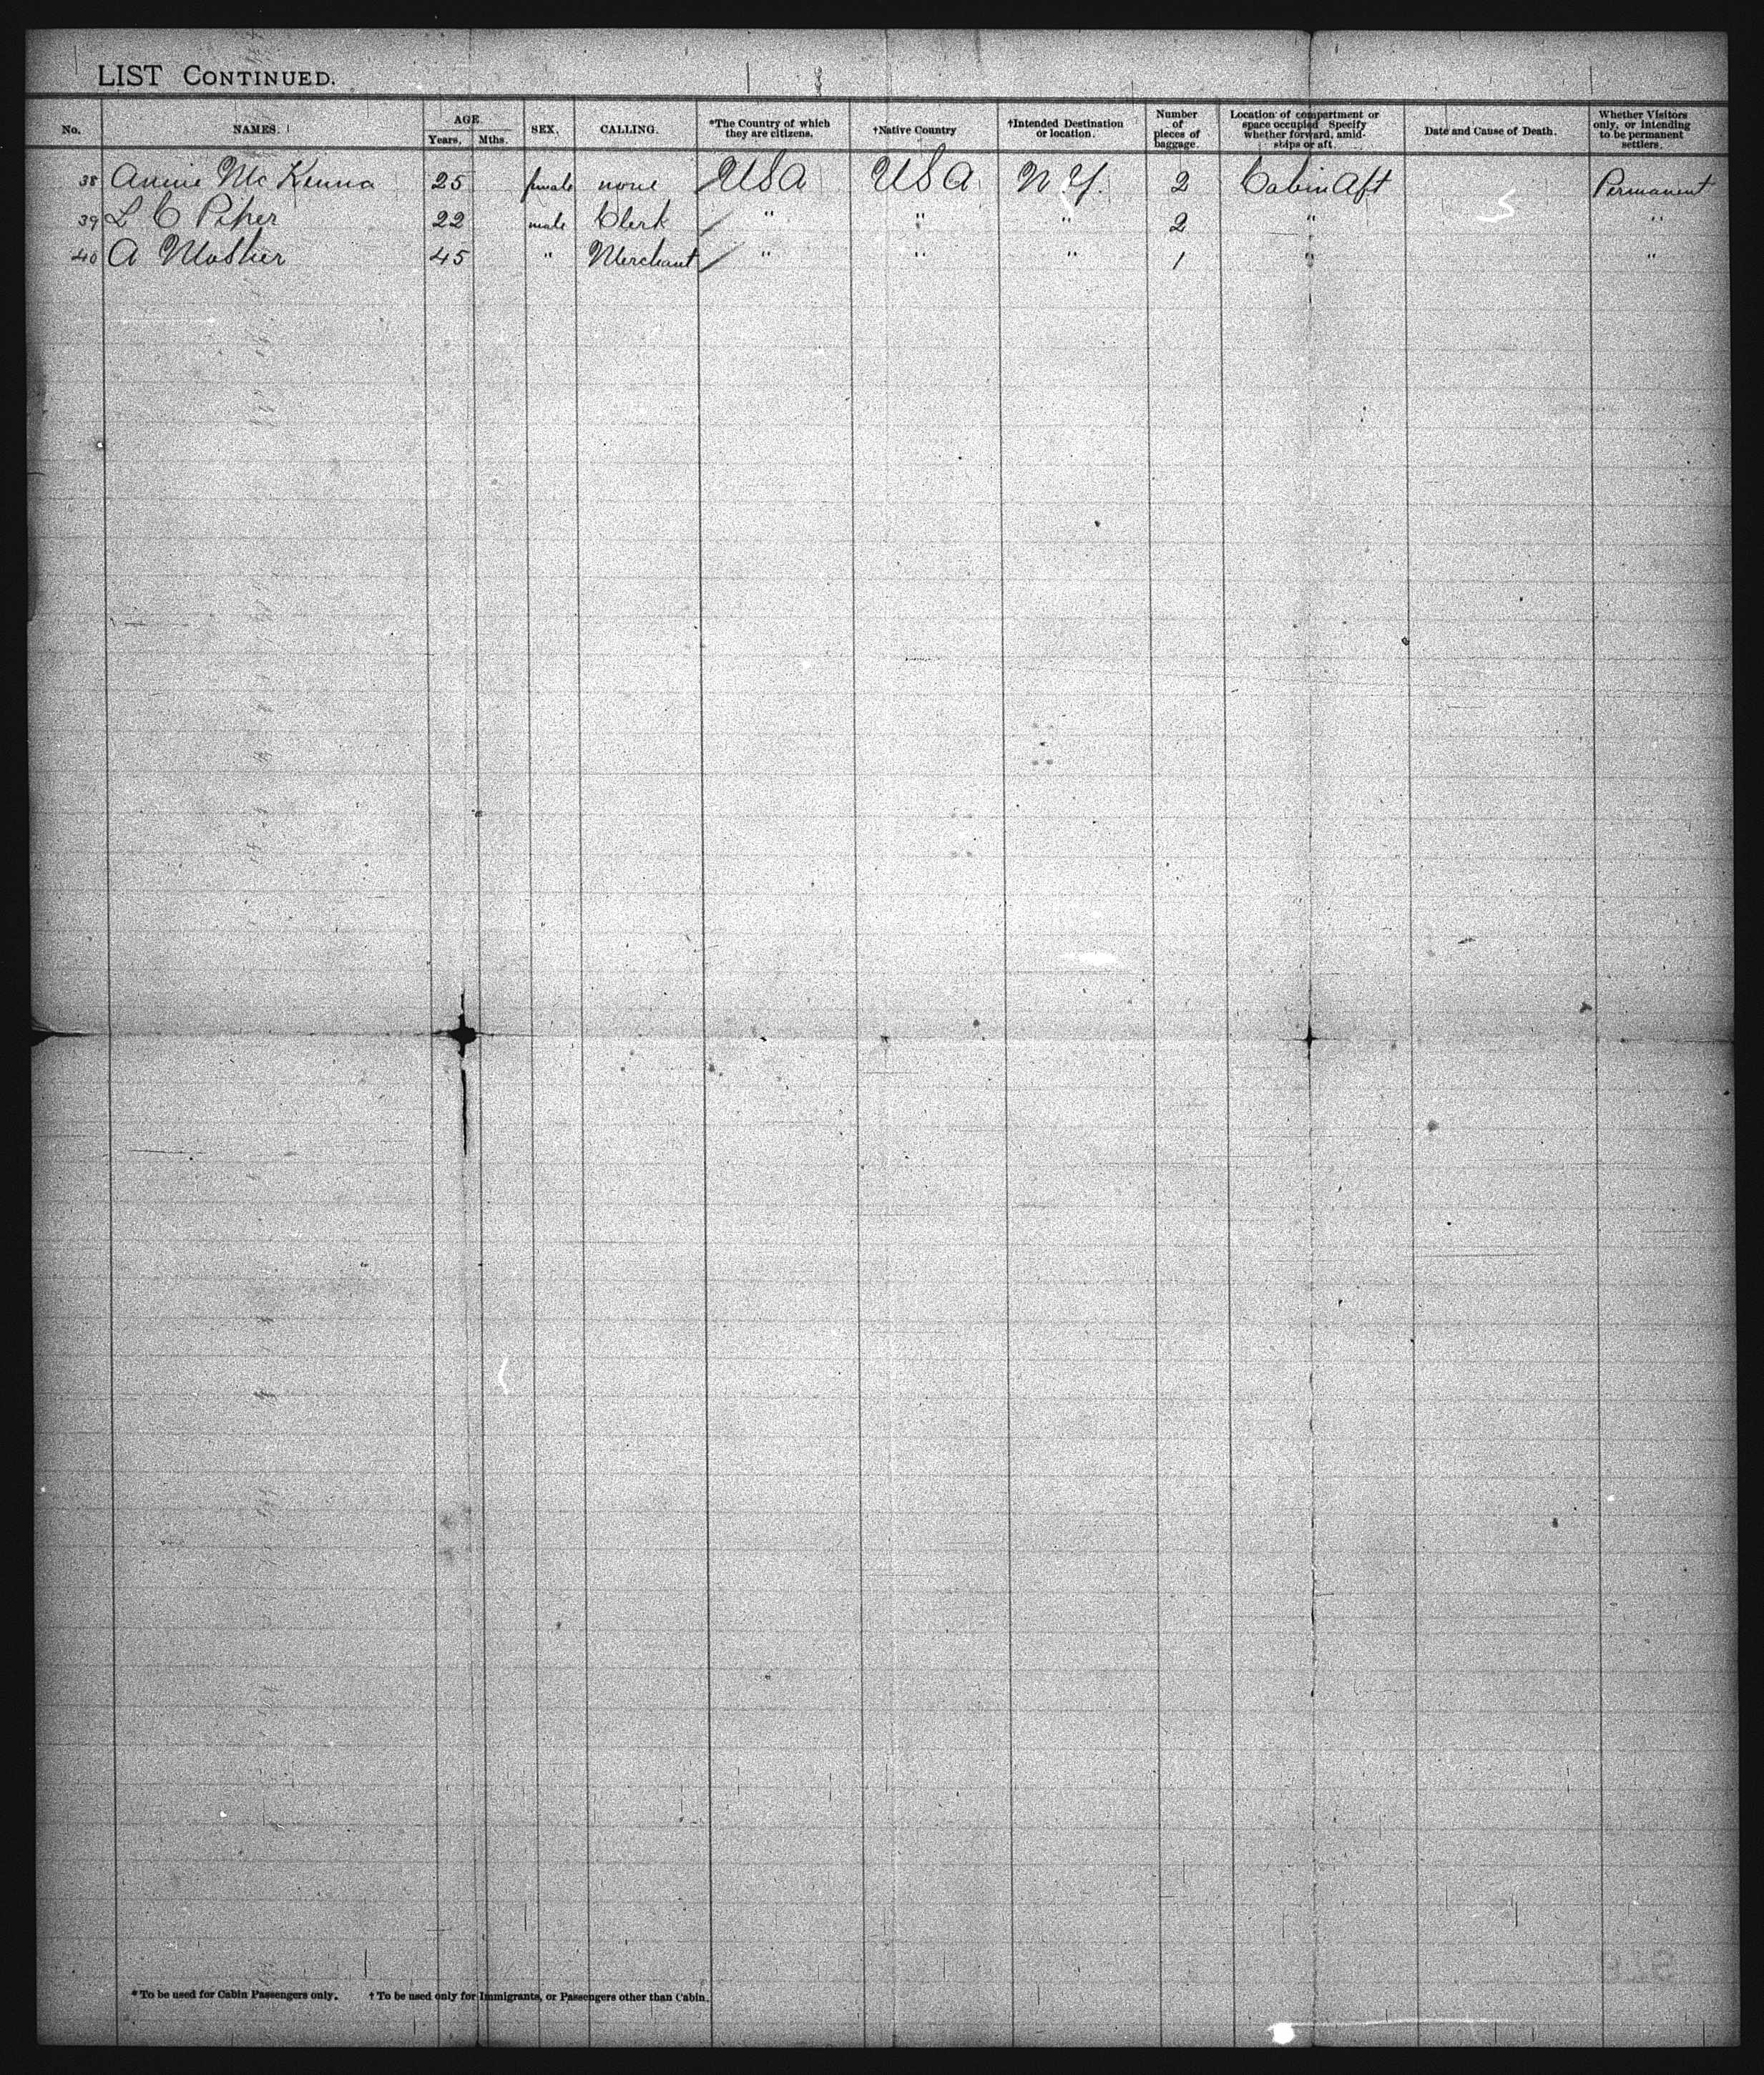 LIST CONTINUED.
No. NAMES. AGE Years. Mths. SEX. CALLING. *The Country of which they are citizens. †Native Country †Intended Destination or location. Number of pieces of baggage. Location of compartment or space occupied Specify whether forward, amidships or aft. Date and Cause of Death. Whether Visitors only, or intending to be permanent settlers.
38 Annie McKenna 25 female none USA USA N Y. 2 Cabin Aft Permanent
39 L C Piper 22 male Clerk " " " 2 " "
40 A Mosher 45 " Merchant " " " 1 " "
*To be used for Cabin Passengers only. †To be used only for Immigrants, or Passengers other than Cabin.